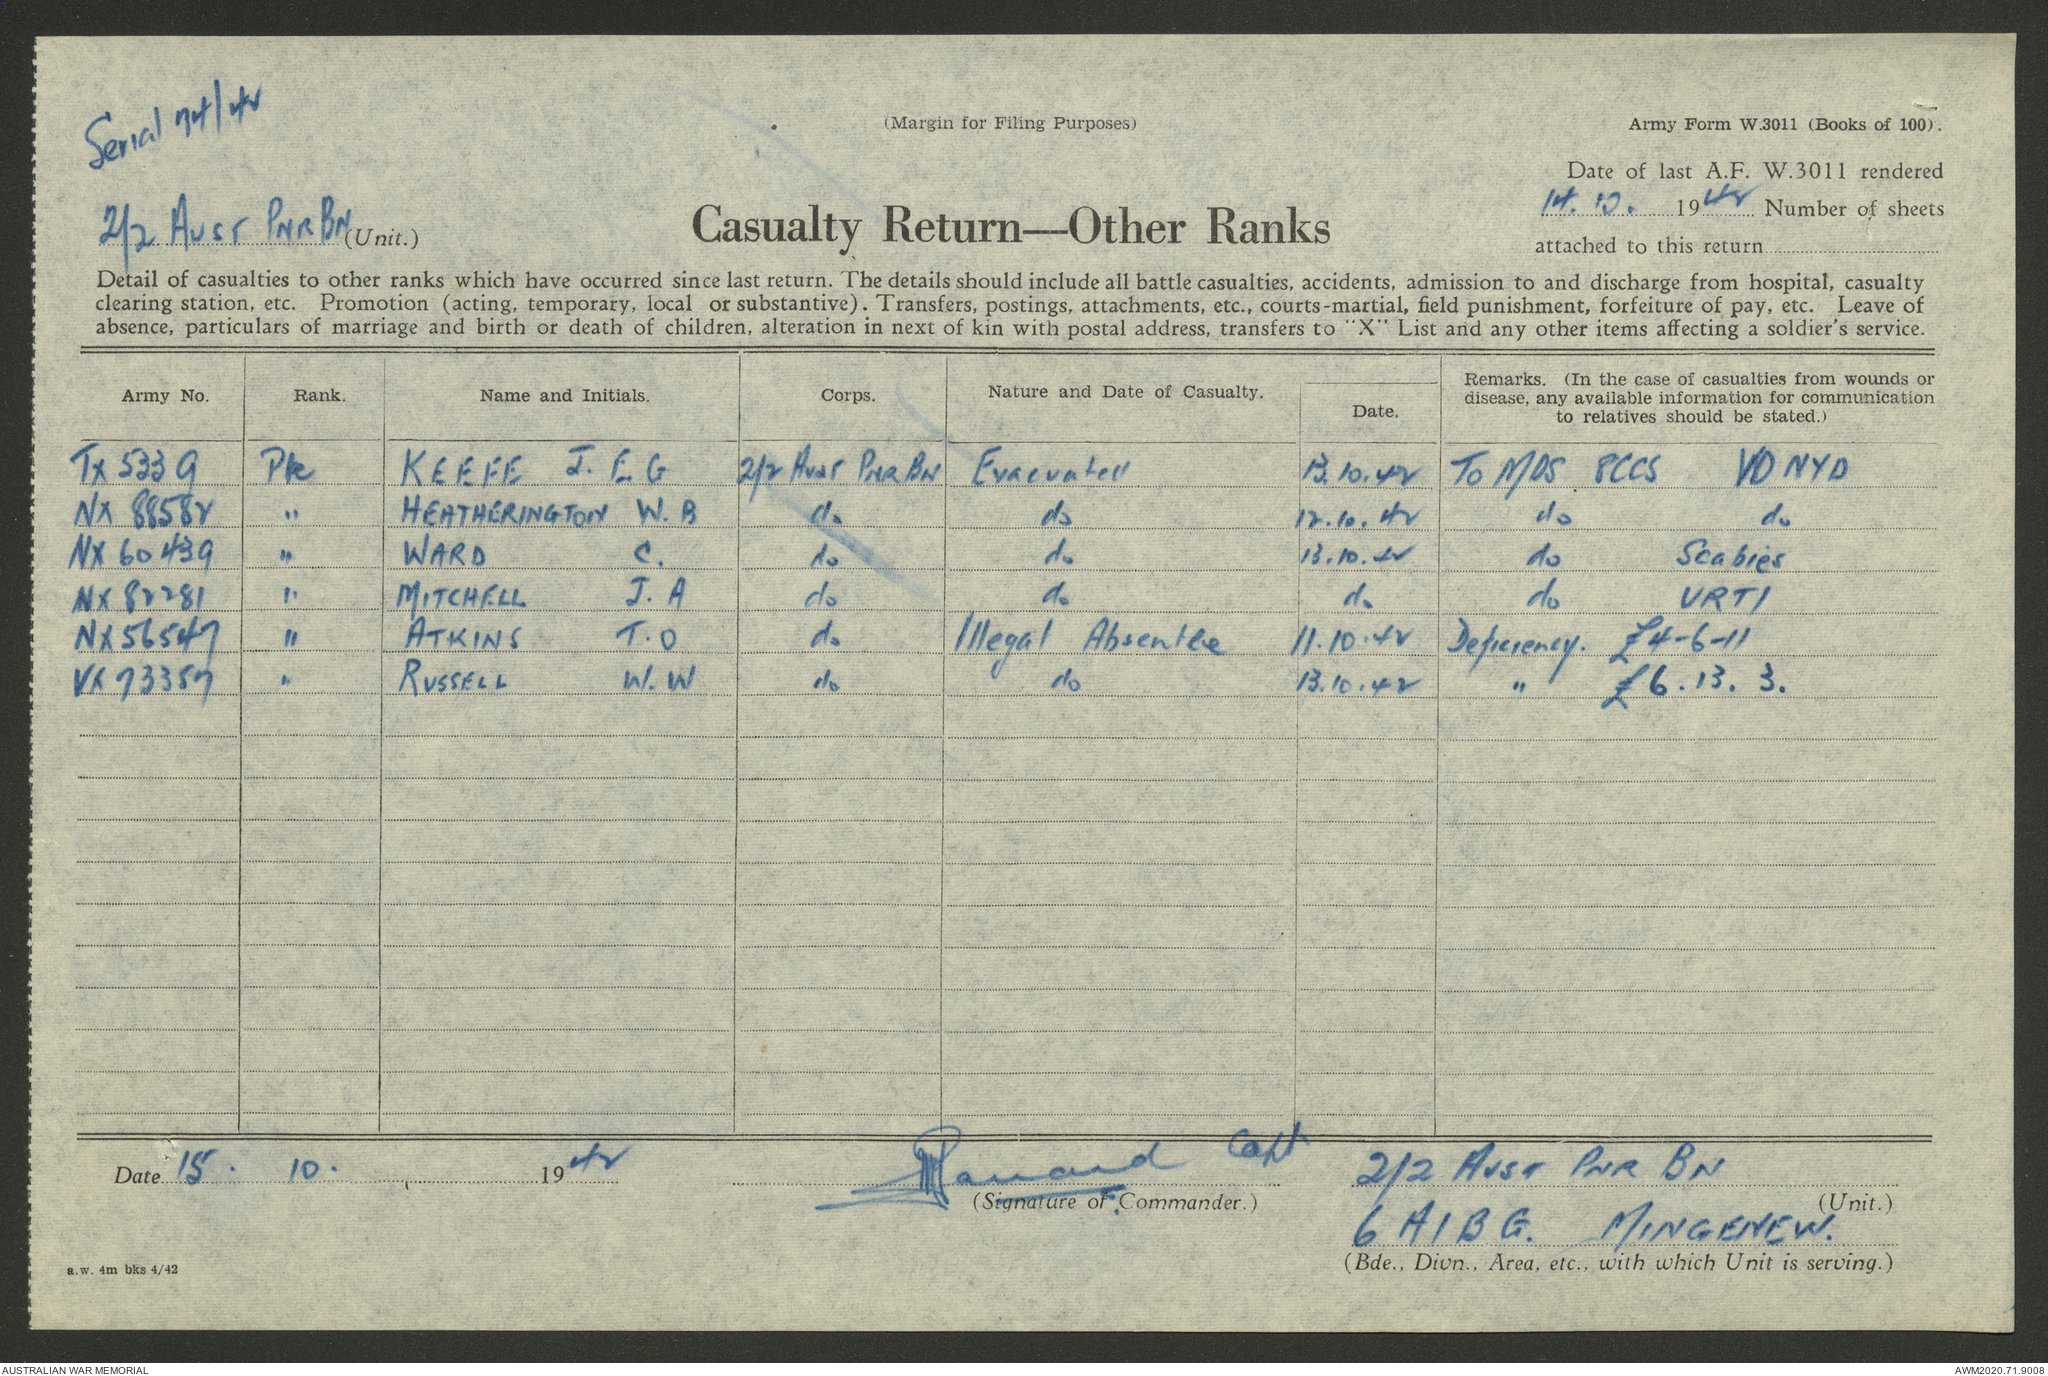 Serial 74/42
(Margin for Filing Purposes)
Army Form W.3011 (Books of 100).
Date of last A.F. W.3011 rendered
14. 10. 1942 Number of sheets
attached to this return
2/2 AUST PNR BN (Unit.)
Casualty Return—Other Ranks
Detail of casualties to other ranks which have occurred since last return. The details should include all battle casualties, accidents, admission to and discharge from hospital, casualty
clearing station, etc. Promotion (acting, temporary, local or substantive). Transfers, postings, attachments, etc., courts-martial, field punishment, forfeiture of pay, etc. Leave of
absence, particulars of marriage and birth or death of children, alteration in next of kin with postal address, transfers to "X" List and any other items affecting a soldier's service.
Army No. Rank. Name and Initials. Corps. Nature and Date of Casualty. Date. Remarks. (In the case of casualties from wounds or
disease, any available information for communication
to relatives should be stated.)
TX 5339 Pte KEEFE J. E G 2/2 Aust PNR BN Evacuated 13.10.42 To MDS 8CCS VD NYD
NX 88582 " HEATHERINGTON W. B do do 12.10.42 do do
NX 60439 " WARD C. do do 13.10.42 do Scabies
NX 82281 " MITCHELL J. A do do do do URTI
NX56547 " ATKINS T. O do Illegal Absentee 11.10.42 Deficiency. £4-6-11
VX 73357 " RUSSELL W. W do do 13.10.42 " £6.13.3.
Date 15. 10. 1942
Capt
(Signature of Commander.)
2/2 AUST PNR BN
(Unit.)
6 AIBG. MINGENEW.
(Bde., Divn., Area, etc., with which Unit is serving.)
a.w. 4m bks 4/42
AUSTRALIAN WAR MEMORIAL
AWM2020.71.9008